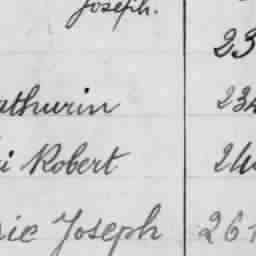 Joseph.
23
athurin 234
i Robert 24
ric Joseph 261